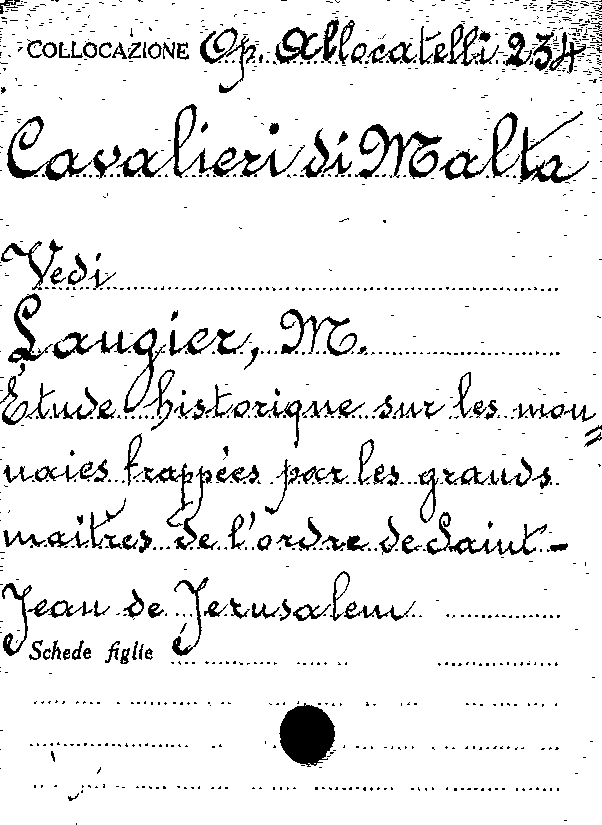 COLLOCAZIONE Op. Allocatelli 234
Cavalieri di Malta
Vedi
Laugier, M.
Étude historique sur les mon=
naies frappées par les grands
maîtres de l'ordre de Saint-
Jean de Jerusalem
Schede figlie